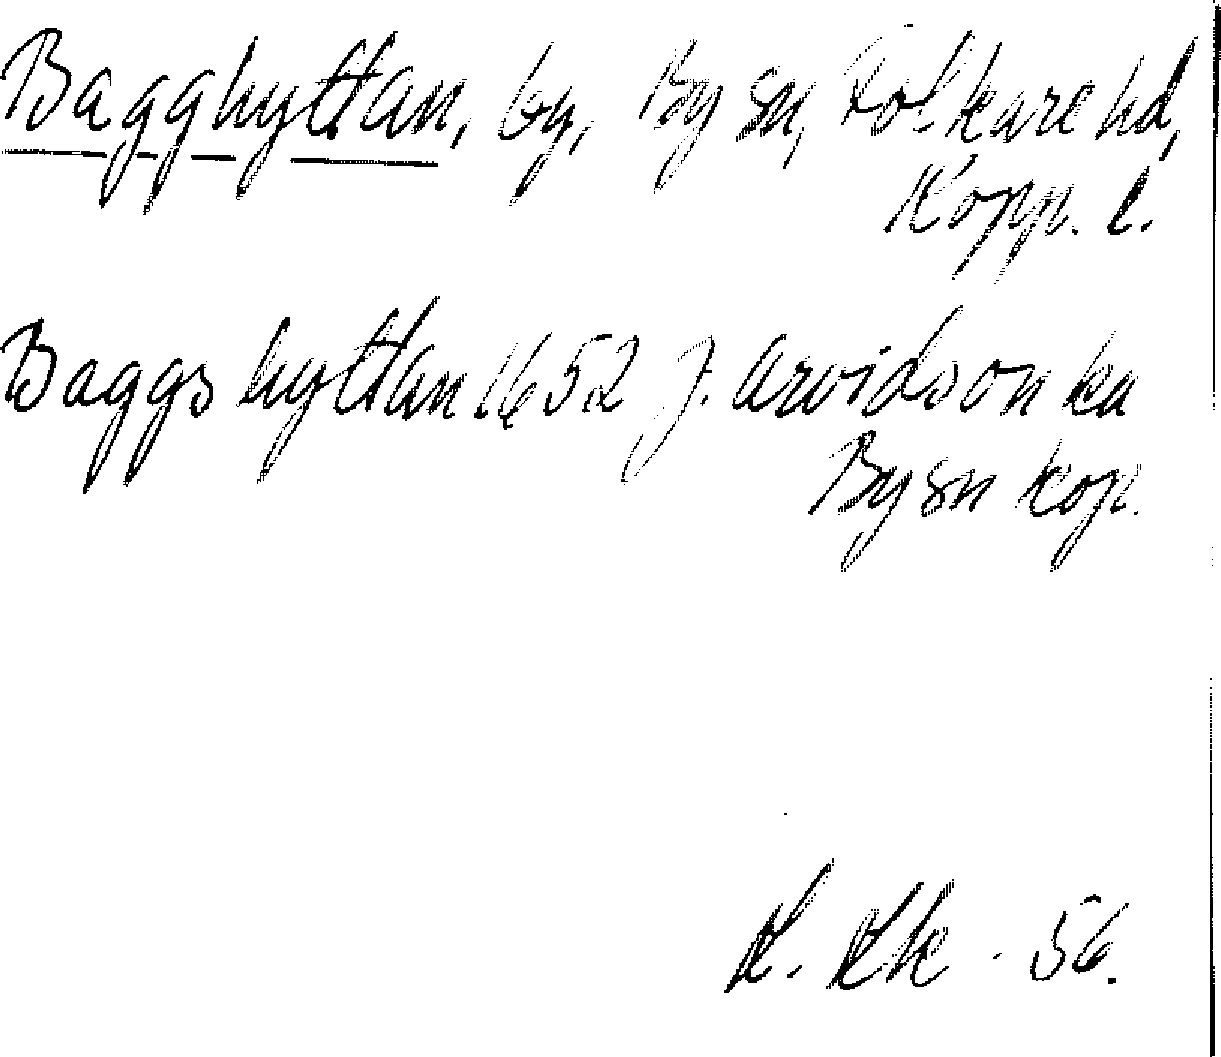 Bagghyttan, by, By sn, Folkare hd,
Kopp. l.
Baggshyttan 1652 J. Arvidson ka
By sn kop.
56.